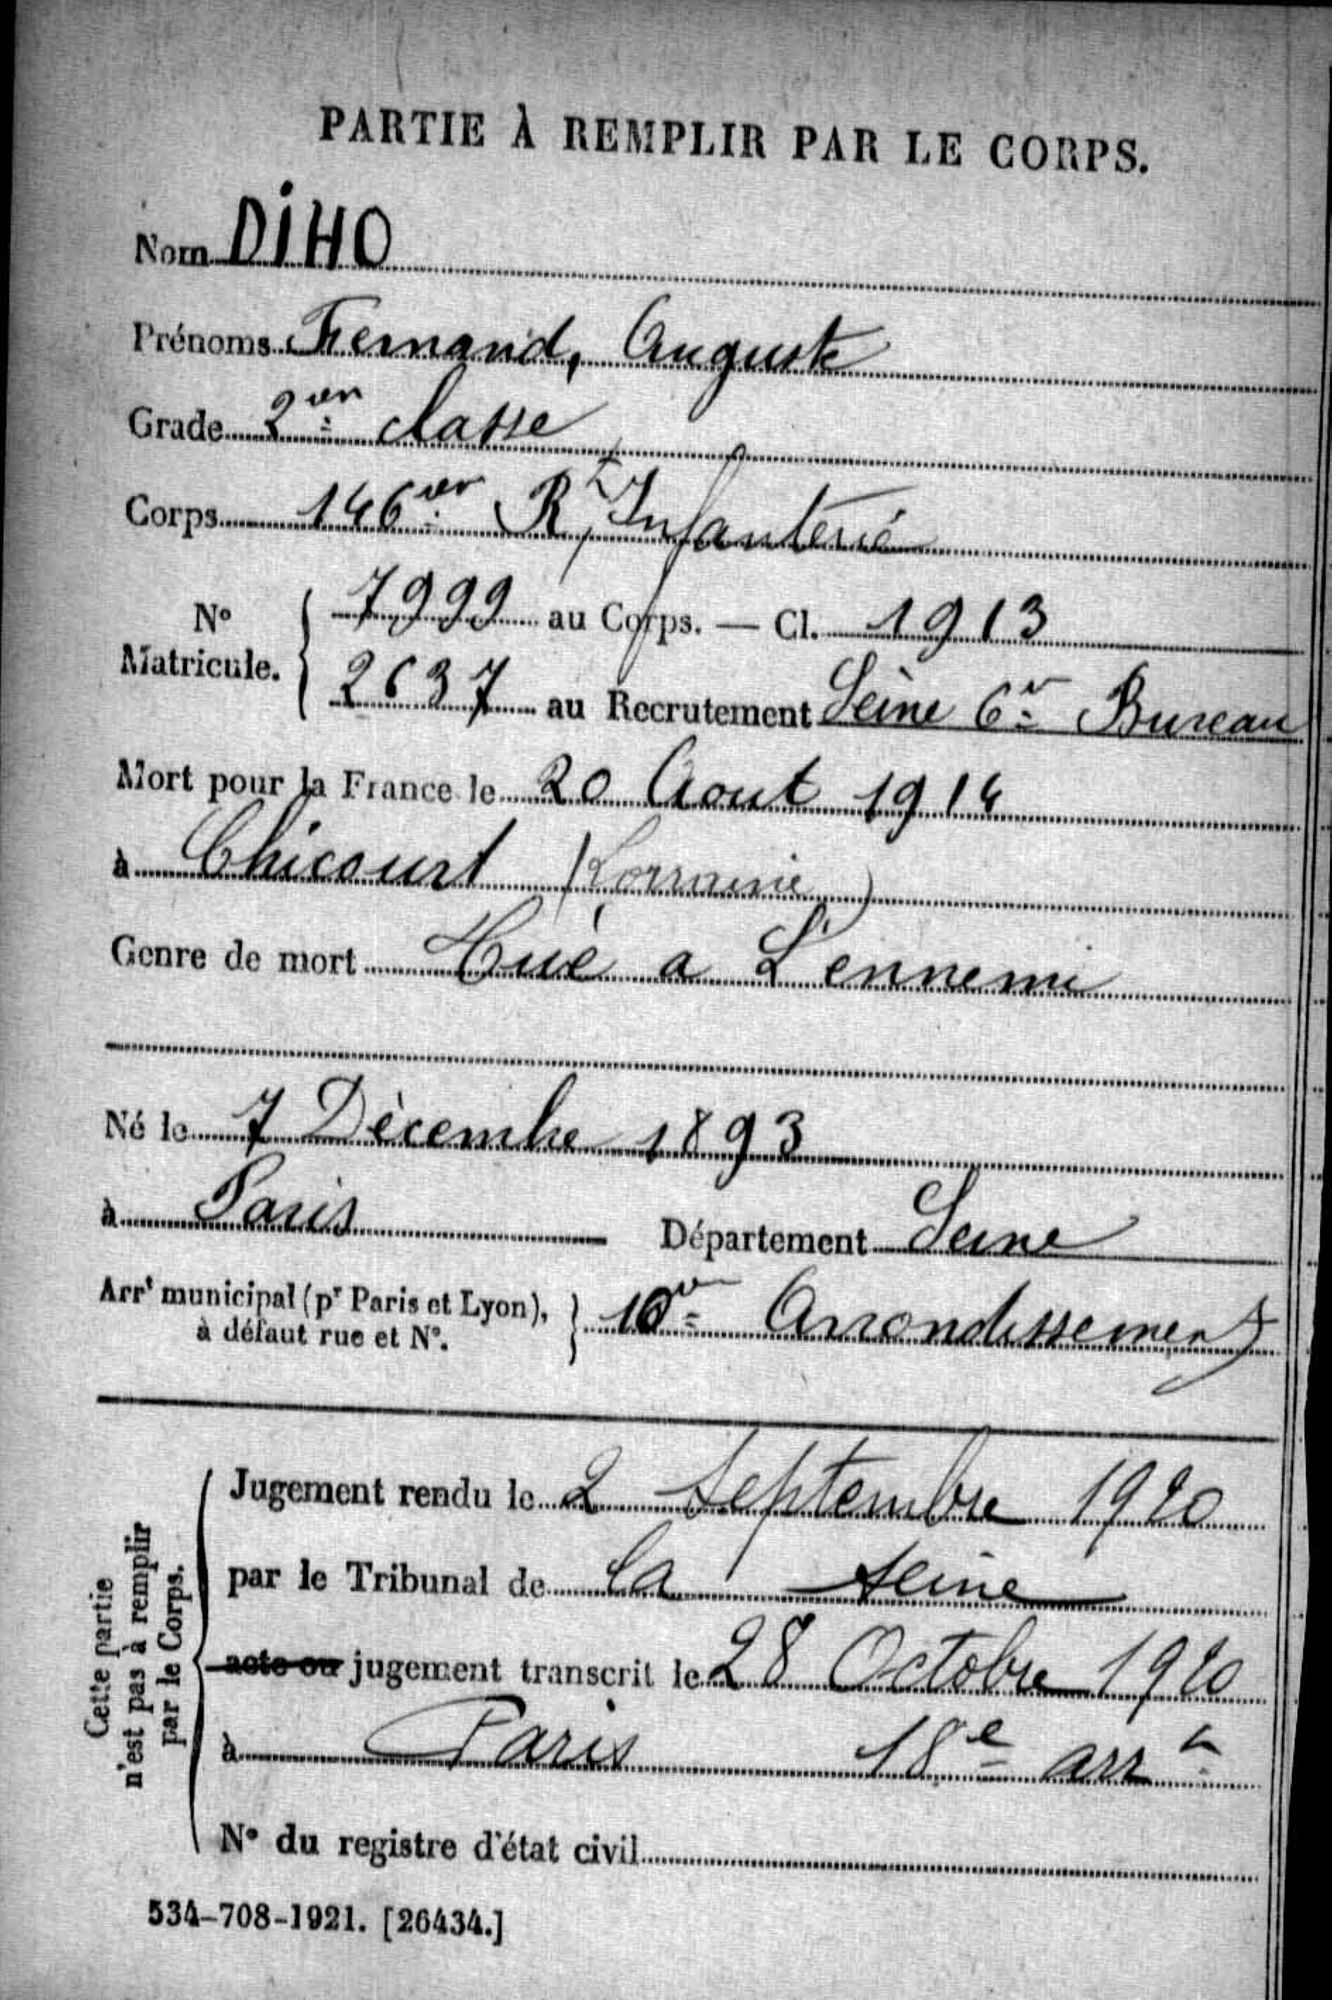 PARTIE À REMPLIR PAR LE CORPS.
Nom DIHO
Prénoms Fernand, Auguste
Grade 2em classe
Corps 146em Rt Infanterie
No Matricule. 7999 au Corps. — Cl. 1913
2637 au Recrutement Seine 6e Bureau
Mort pour la France le 20 Aout 1914
à Chicourt (Lorraine)
Genre de mort Tué a L'ennemi
Né le 7 Décembre 1893
à Paris Département Seine
Arrt municipal (pr Paris et Lyon), à défaut rue et No. 10e Arrondissement
Cette partie n'est pas à remplir par le Corps.
Jugement rendu le 2 Septembre 1920
par le Tribunal de la Seine
acte ou jugement transcrit le 28 Octobre 1920
à Paris 18e arrt
No du registre d'état civil
534-708-1921. [26434.]